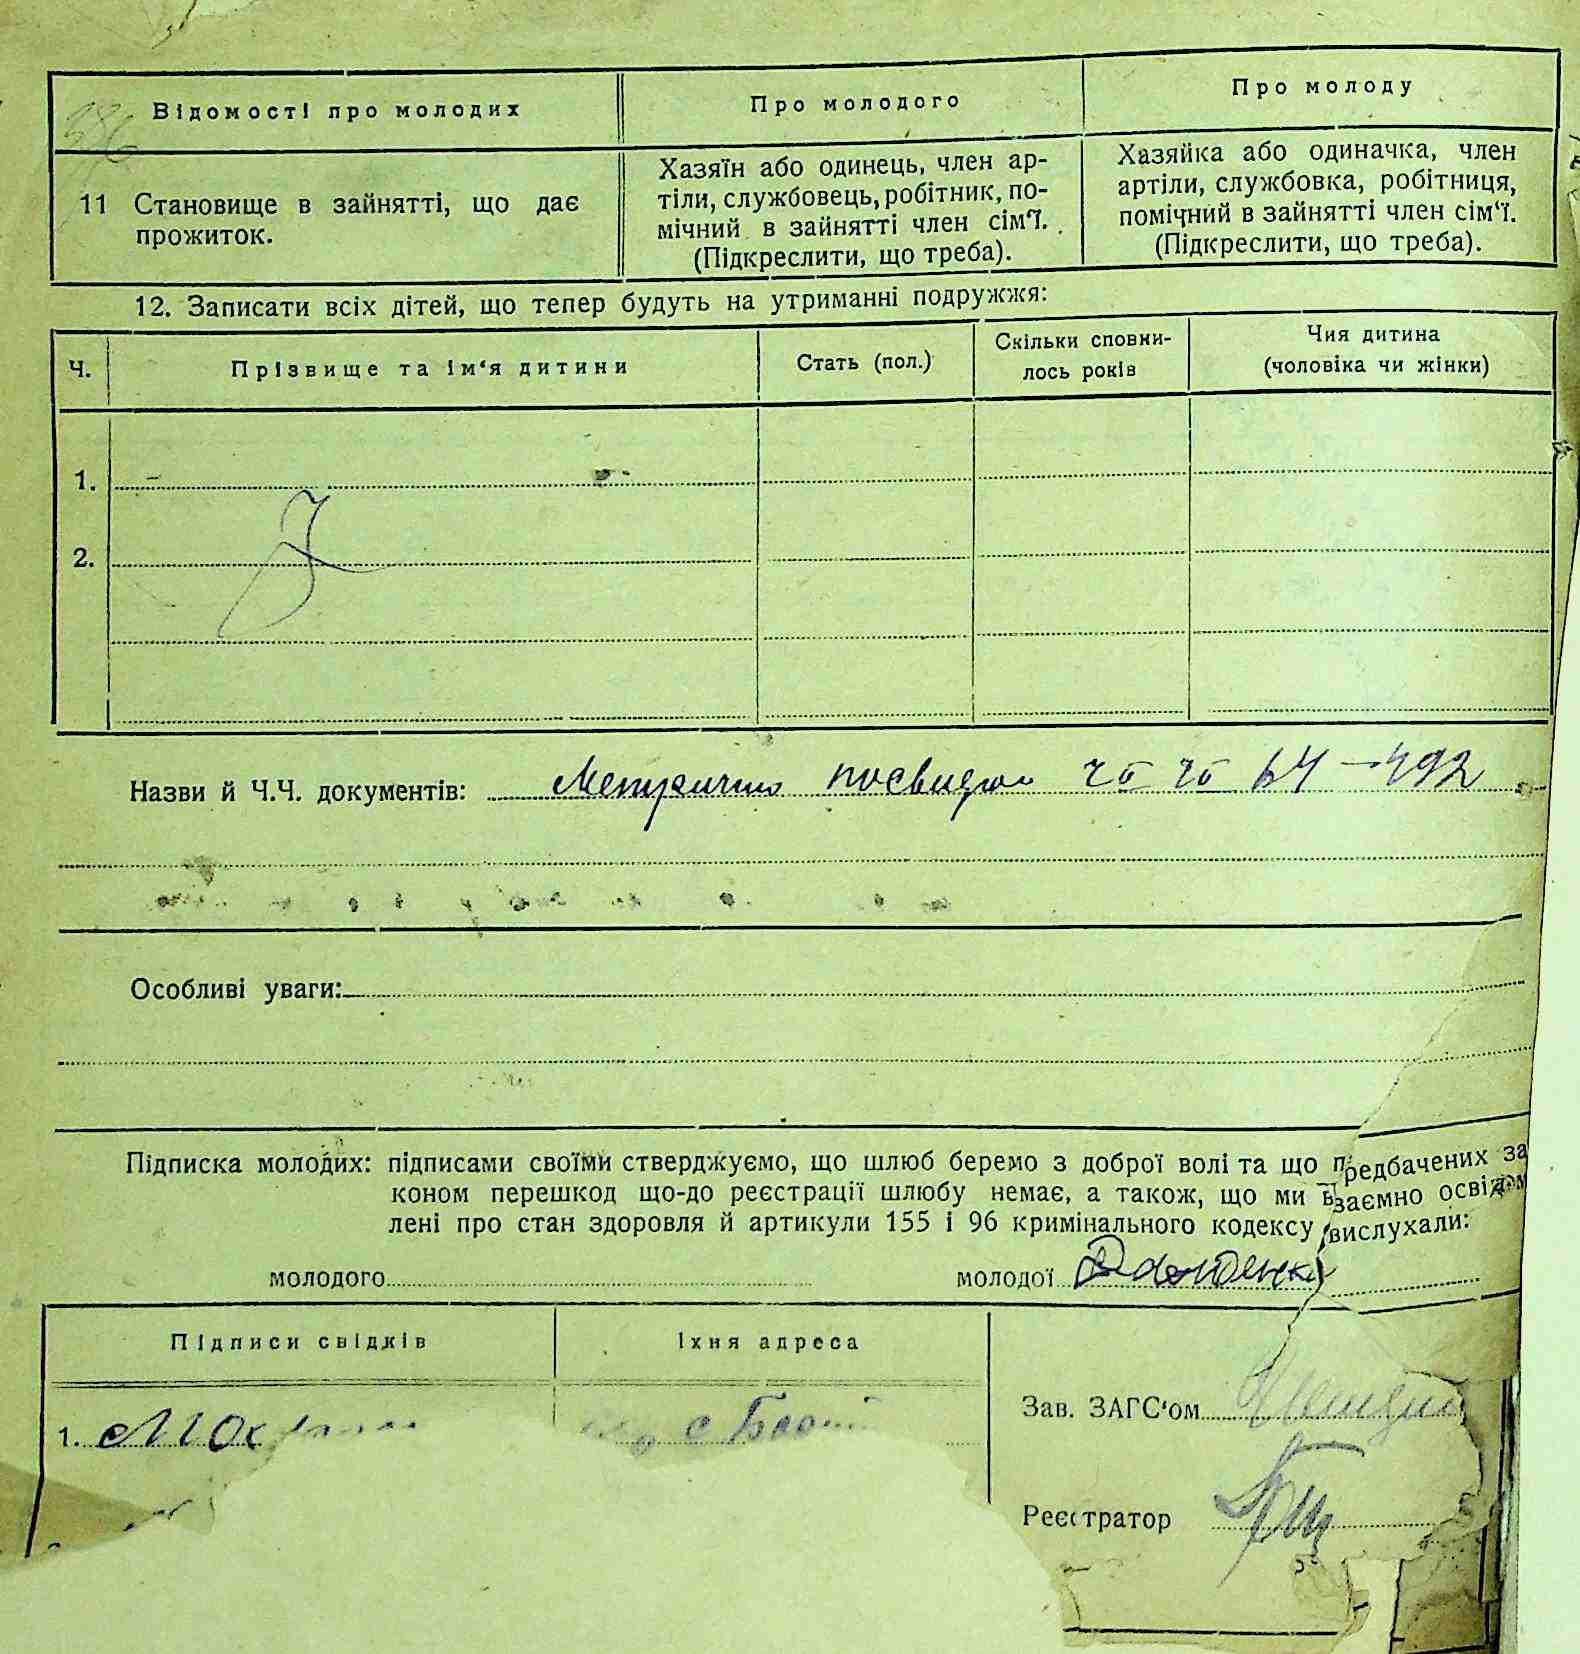 Відомості про молодих
Про молодого
Про молоду
11 Становище в зайнятті, що дає
прожиток.
Хазяїн або одинець, член ар-
тіли, службовець, робітник, по-
мічний в зайнятті член сім'ї.
(Підкреслити, що треба).
Хазяйка або одиначка, член
артіли, службовка, робітниця,
помічний в зайнятті член сім'ї.
(Підкреслити, що треба).
12. Записати всіх дітей, що тепер будуть на утриманні подружжя:
Ч.
Прізвище та ім'я дитини
Стать (пол.)
Скільки сповни-
лось років
Чия дитина
(чоловіка чи жінки)
1.
2.
Назви й Ч.Ч. документів: 64 - 492
Особливі уваги:
Підписка молодих: підписами своїми стверджуємо, що шлюб беремо з доброї волі та що передбачених за
коном перешкод що-до реєстрації шлюбу немає, а також, що ми взаємно освідом
лені про стан здоровля й артикули 155 і 96 кримінального кодексу вислухали:
молодого
молодої
Підписи свідків
Їхня адреса
1.
Зав. ЗАГС'ом
Реєстратор